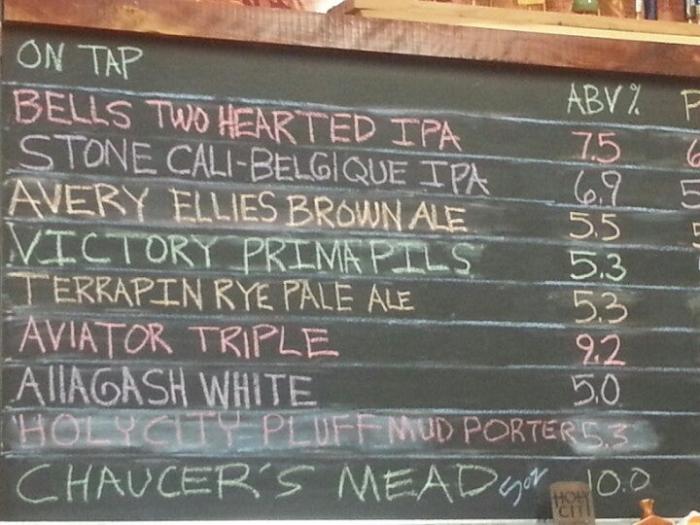 ON TAP ABV %
BELLS TWO HEARTED IPA 7.5
STONE CALI-BELGIQUE IPA 6.9
AVERY ELLIES BROWN ALE 5.5
VICTORY PRIMA PILS 5.3
TERRAPIN RYE PALE ALE 5.3
AVIATOR TRIPLE 9.2
AllAGASH WHITE 5.0
HOLY CITY PLUFF MUD PORTER 5.3
CHAUCER'S MEAD 5oz 10.0
HOLY
CITY